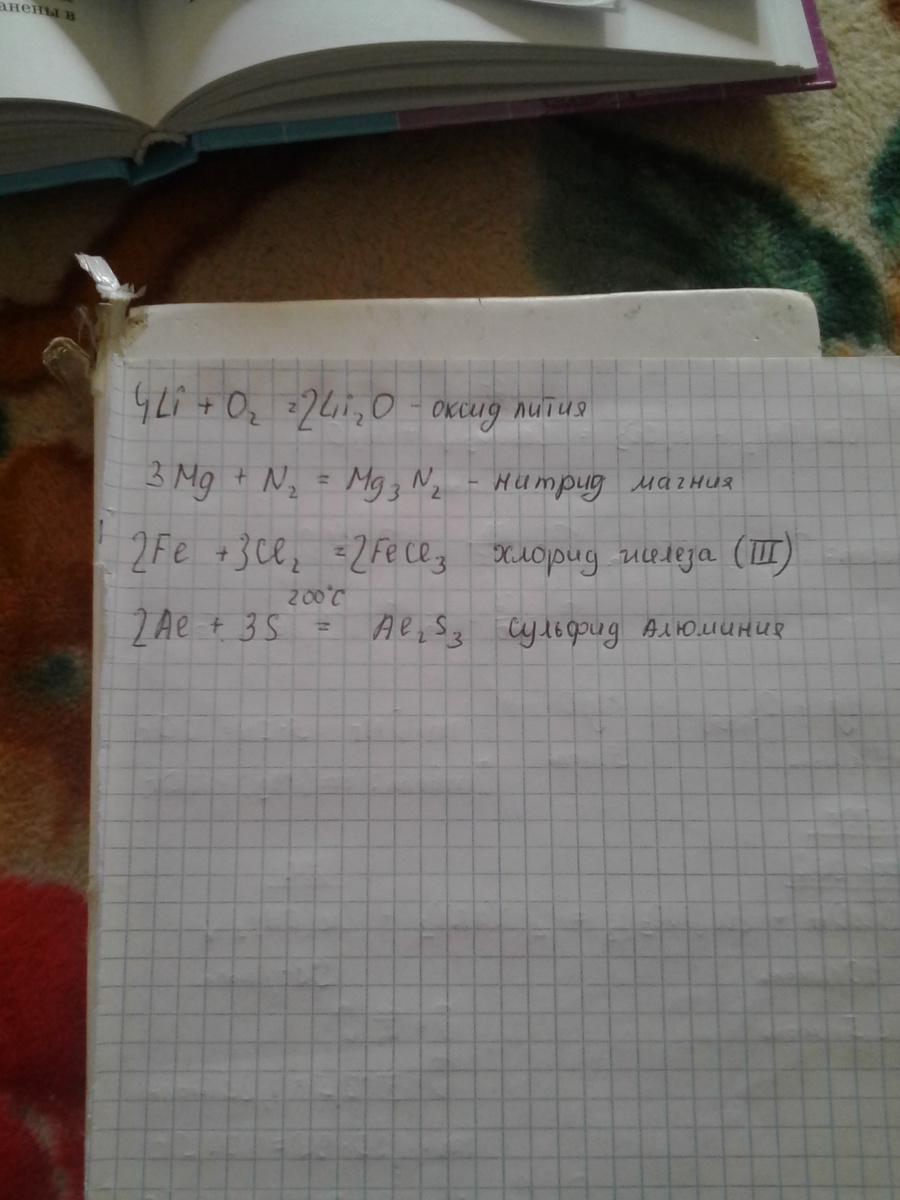 анены в
4Li + O₂ = 2Li₂O - оксид лития
3Mg + N₂ = Mg₃N₂ - нитрид магния
2Fe + 3Cl₂ = 2FeCl₃ хлорид железа (III)
200°C
2Al + 3S = Al₂S₃ сульфид алюминия